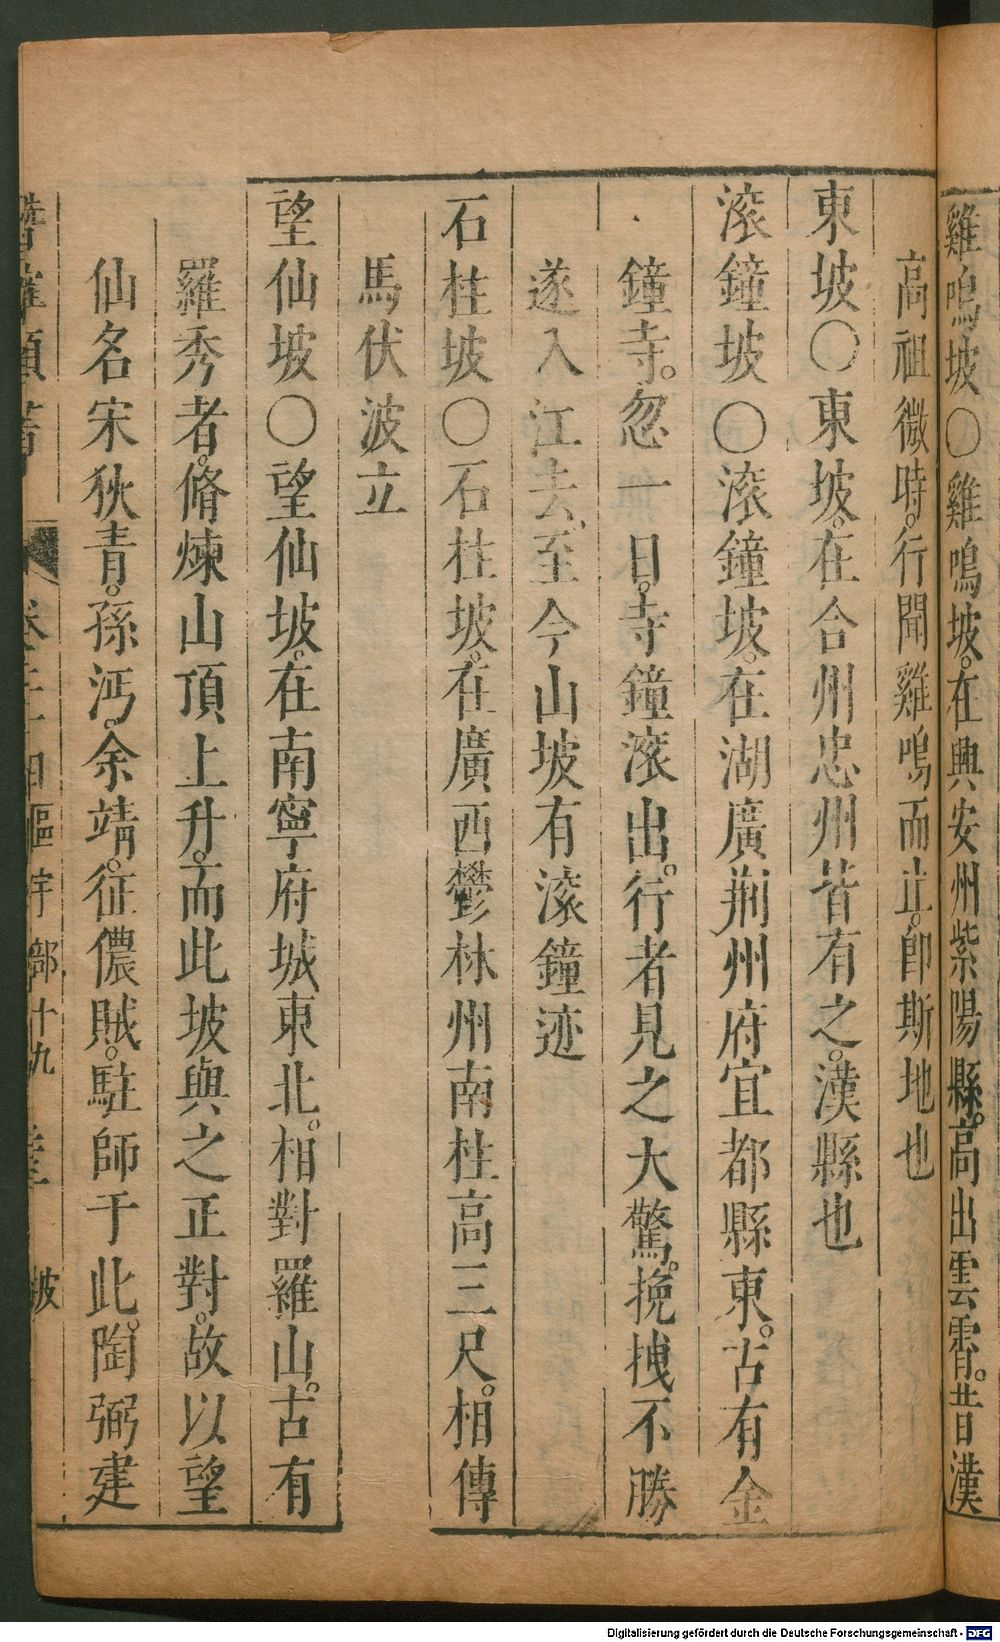 雞鳴坡〇雞鳴坡。在興安州紫陽縣。高出雲霄。昔漢
高祖微時。行聞雞鳴而止。卽斯地也
東坡〇東坡。在合州忠州皆有之。漢縣也
滚鐘坡〇滚鐘坡。在湖廣荆州府宜都縣東。古有金
鐘寺。忽一日。寺鐘滚出。行者見之大驚。挽拽不勝
遂入江去。至今山坡有滚鐘迹
石柱坡〇石柱坡。在廣西鬱林州南柱高三尺。相傳
馬伏波立
望仙坡〇望仙坡。在南寧府城東北。相對羅山。古有
羅秀者。脩煉山頂上升。而此坡與之正對。故以望
仙名宋狄青。孫沔。余靖。征儂賊。駐師于此。陶弼建
部十九 坡
Digitalisierung gefördert durch die Deutsche Forschungsgemeinschaft - DFG